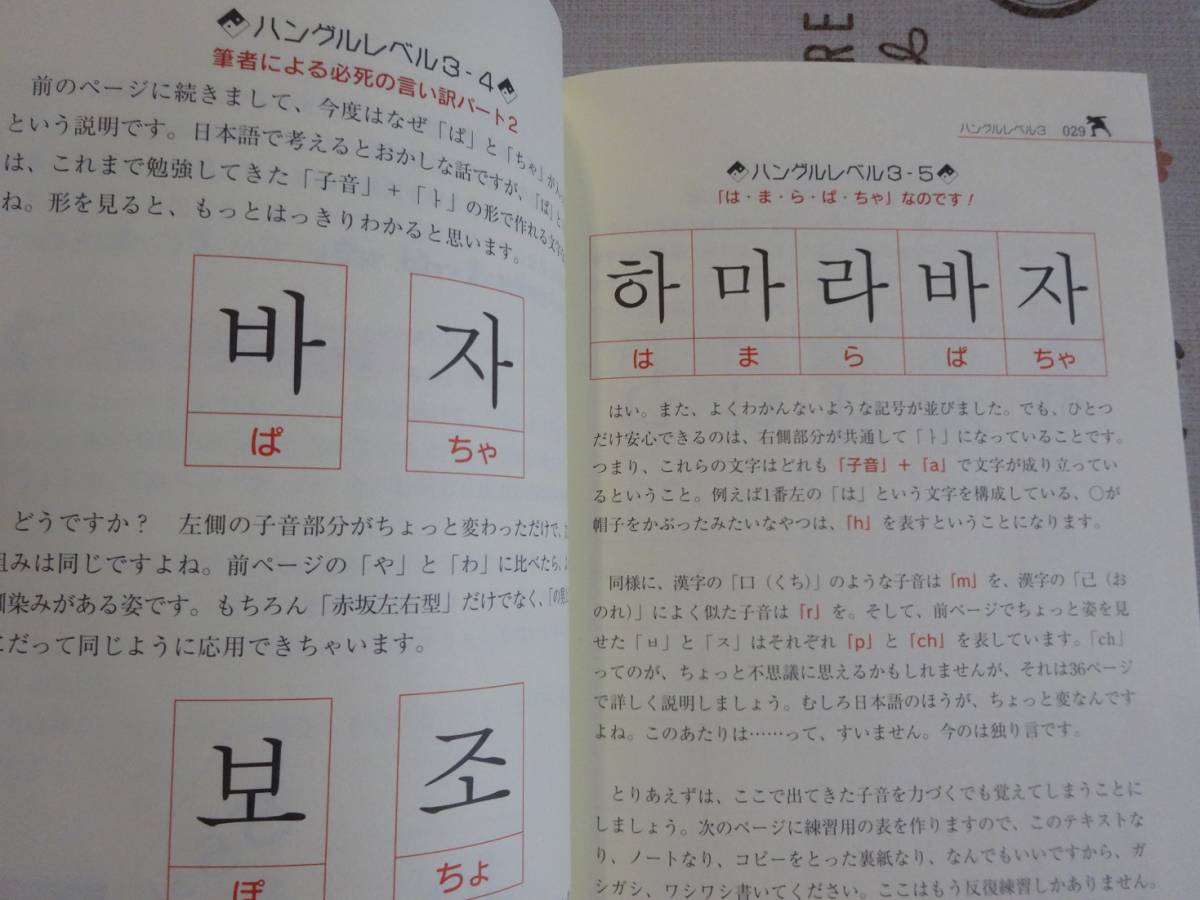 ハングルレベル3-4
筆者による必死の言い訳パート2
前のページに続きまして、今度はなぜ「ぱ」と「ちゃ」が
という説明です。日本語で考えるとおかしな話ですが、「ぱ」と
は、これまで勉強してきた「子音」+「ㅏ」の形で作れる文字
ね。形を見ると、もっとはっきりわかると思います。
바 자
ぱ ちゃ
どうですか? 左側の子音部分がちょっと変わっただけで、
組みは同じですよね。前ページの「や」と「わ」に比べたら、
染みがある姿です。もちろん「赤坂左右型」だけでなく、「の
にだって同じように応用できちゃいます。
보 조
ぽ ちょ
ハングルレベル3 029
ハングルレベル3-5
「は・ま・ら・ぱ・ちゃ」なのです!
하 마 라 바 자
は ま ら ぱ ちゃ
はい。また、よくわかんないような記号が並びました。でも、ひとつ
だけ安心できるのは、右側部分が共通して「ㅏ」になっていることです。
つまり、これらの文字はどれも「子音」+「a」で文字が成り立ってい
るということ。例えば1番左の「は」という文字を構成している、○が
帽子をかぶったみたいなやつは、「h」を表すということになります。
同様に、漢字の「口(くち)」のような子音は「m」を、漢字の「己(お
のれ)」によく似た子音は「r」を。そして、前ページでちょっと姿を見
せた「ㅂ」と「ス」はそれぞれ「p」と「ch」を表しています。「ch」
ってのが、ちょっと不思議に思えるかもしれませんが、それは36ページ
で詳しく説明しましょう。むしろ日本語のほうが、ちょっと変なんです
よね。このあたりは……って、すいません。今のは独り言です。
とりあえずは、ここで出てきた子音を力づくでも覚えてしまうことに
しましょう。次のページに練習用の表を作りますので、このテキストな
り、ノートなり、コピーをとった裏紙なり、なんでもいいですから、ガ
シガシ、ワシワシ書いてください。ここはもう反復練習しかありません。